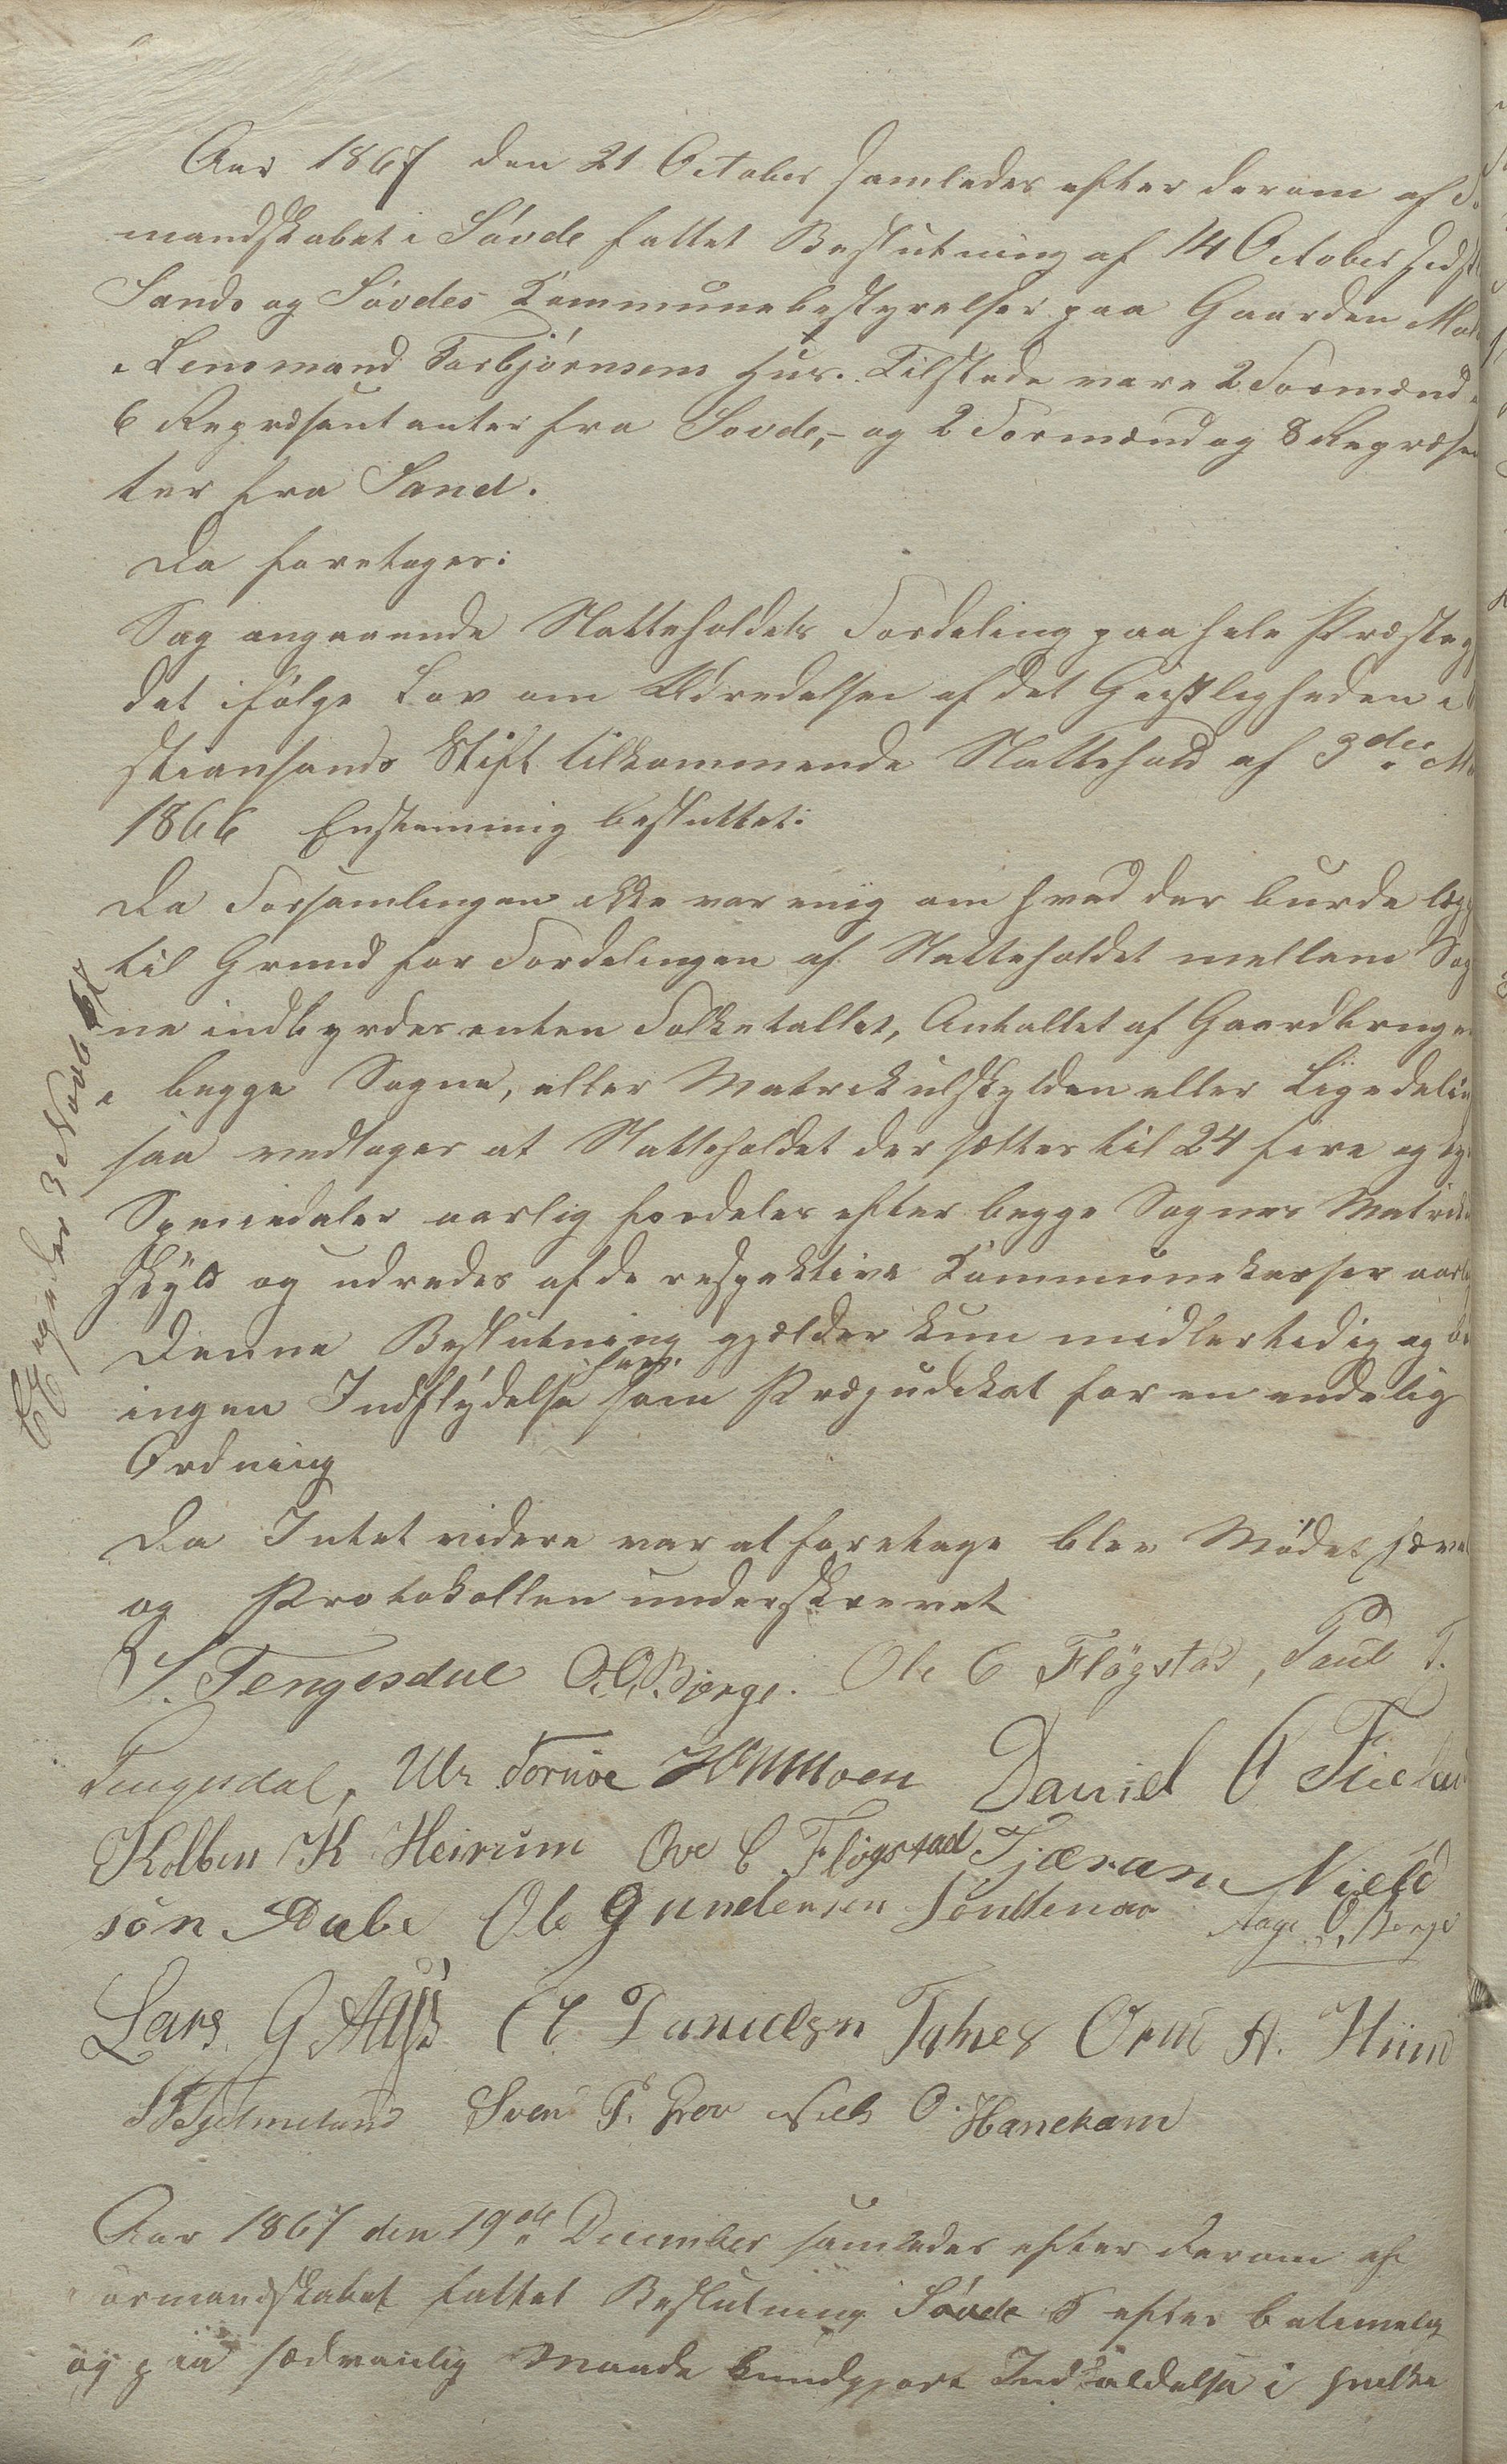 Aar 1867 den 21 October samledes efter derom af
mandskabet i Søvde fattet Beslutning af 14 October
Sands og Søvdes Kommunebestyrelser paa Gaarden
i Lensmand Torbjørnsens Huus. Tilstede vare 2 Formænd
6 Repræsentanter fra Sovde,- og 2 Formænd og 8 Repræsen
ter fra Sand.
Da foretoges:
Sag angaaende Natteholdets Fordeling paa hele Præsteg
det ifølge Lov om Udredelsen af det Geistligheden i
stiansands Stift tilkommende Nattehold af 3die
1866 Enstemmig besluttet:
Da Forsamlingen ikke var enig om hvad der burde læg
til Grund for Fordelingen af Natteholdet mellem Sog
ne indbyrdes enten Folketallet, Antallet af Gaardbruger
i begge Sogne, eller Matrikulskylden eller Ligedelin
saa vedtoges at Natteholdet der sættes til 24 fire og ty
Speciedaler aarlig fordeles efter begge Sognes Matrik
skyld og udredes af de respektive Kommunekasser aarlig
Denne Beslutning gjælder kun midlertidig og
ingen Indflydelse som Præjudikat for en endelig
Ordning
Da Intet videre var at foretage blev Mødet hævet
og Protokollen underskrevet
S. Tengesdal O. O. Bjørge. Ole C Fløgstad, Paul T.
Tengesdal, Ulr Tornøe Daniel O
Kolben K Heirum Ove C Fløgstad Tjæran Niels
søn Aabe Ole Gundersen Aage O, Berge
Lars G Danielsen Orm A. Hiim
Sven P. Grov Niels O. Hanekam
Aar 1867 den 19de December samledes efter derom af
ormandskabet fattet Beslutning Søvde S efter betimelig
og paa sædvanlig Maade kundgjort Indkaldelse i hvilke
3 Novb 67